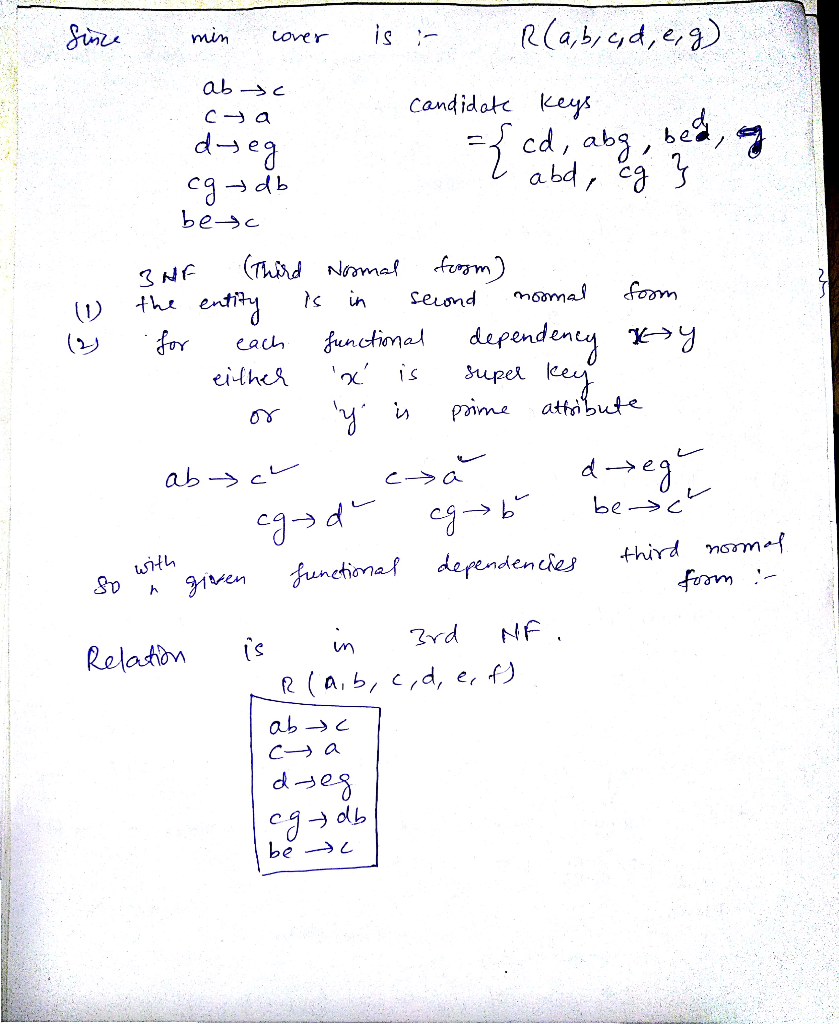 Since min cover is :- R(a,b,c,d,e,g)
ab → c
c → a
d → eg
cg → db
be → c
candidate keys
= { cd, abg, bed,
abd, cg }
3NF (Third Normal form)
(1) the entity is in second normal form
(2) for each functional dependency x → y
either 'x' is super key
or 'y' is prime attribute
ab → c ✓ c → a ✓ d → eg ✓
cg → d ✓ cg → b ✓ be → c ✓
So with given functional dependencies third normal
form :-
Relation is in 3rd NF.
R(a,b,c,d,e,f)
ab → c
c → a
d → eg
cg → db
be → c
}